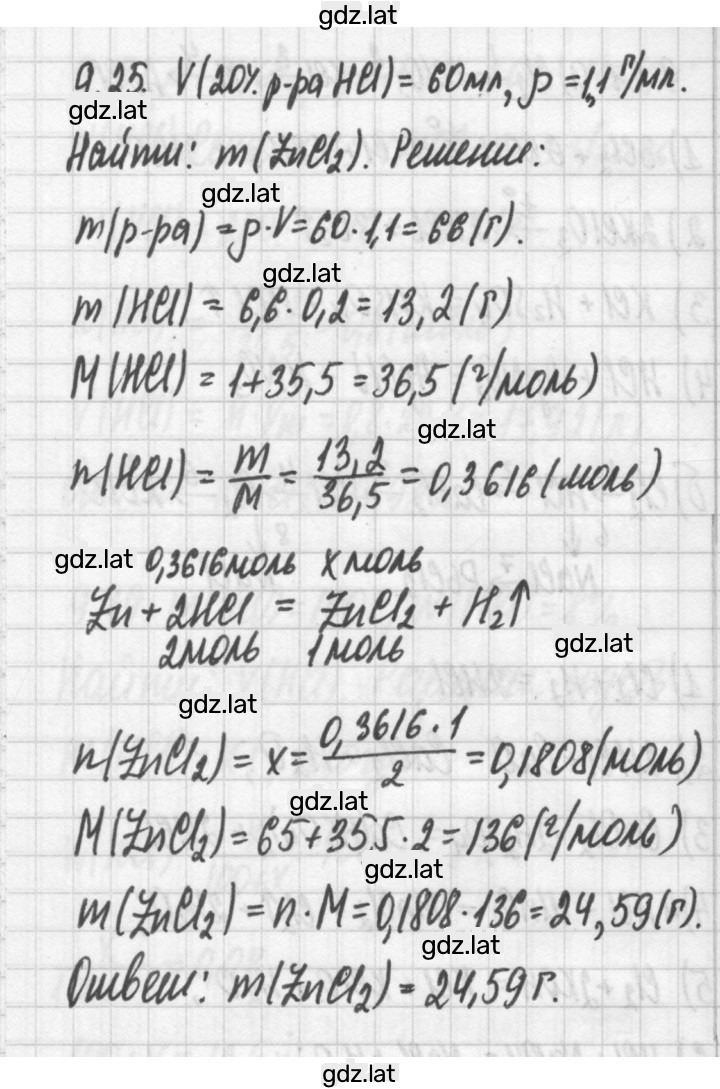 gdz.lat
9.25. V(20% р-ра HCl) = 60мл, ρ = 1,1 г/мл.
gdz.lat
Найти: m(ZnCl₂). Решение:
gdz.lat
m(р-ра) = ρ·V = 60·1,1 = 66(г).
gdz.lat
m(HCl) = 6,6·0,2 = 13,2(г)
M(HCl) = 1+35,5 = 36,5(г/моль)
gdz.lat
n(HCl) = m/M = 13,2/36,5 = 0,3616(моль)
gdz.lat 0,3616моль x моль
Zn + 2HCl = ZnCl₂ + H₂↑
gdz.lat
2моль 1моль
gdz.lat
n(ZnCl₂) = x = 0,3616·1/2 = 0,1808(моль)
gdz.lat
M(ZnCl₂) = 65+35.5·2 = 136(г/моль)
gdz.lat
m(ZnCl₂) = n·M = 0,1808·136 = 24,59(г).
gdz.lat
Ответ: m(ZnCl₂) = 24,59 г.
gdz.lat